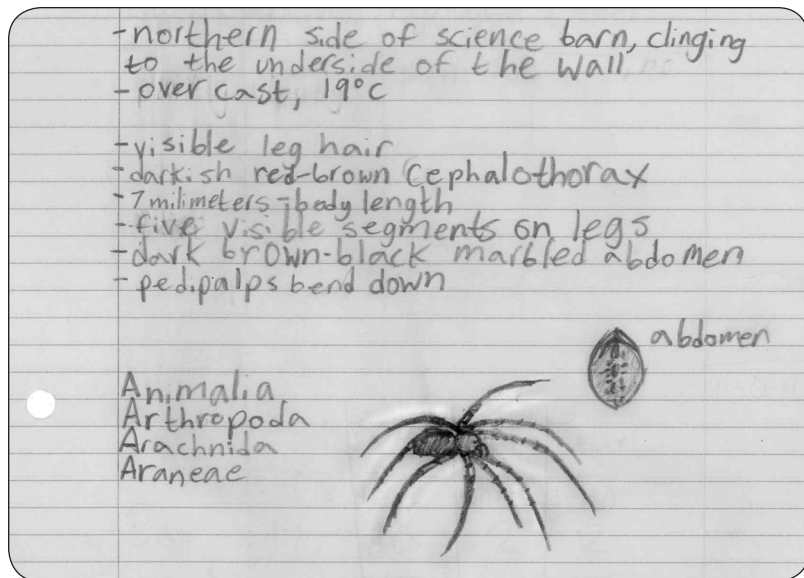 -northern side of science barn, clinging
to the underside of the wall
-overcast, 19°c
-visible leg hair
-darkish red-brown cephalothorax
-7 milimeters-body length
-five visible segments on legs
-dark brown-black marbled abdomen
-pedipalps bend down
abdomen
Animalia
Arthropoda
Arachnida
Araneae